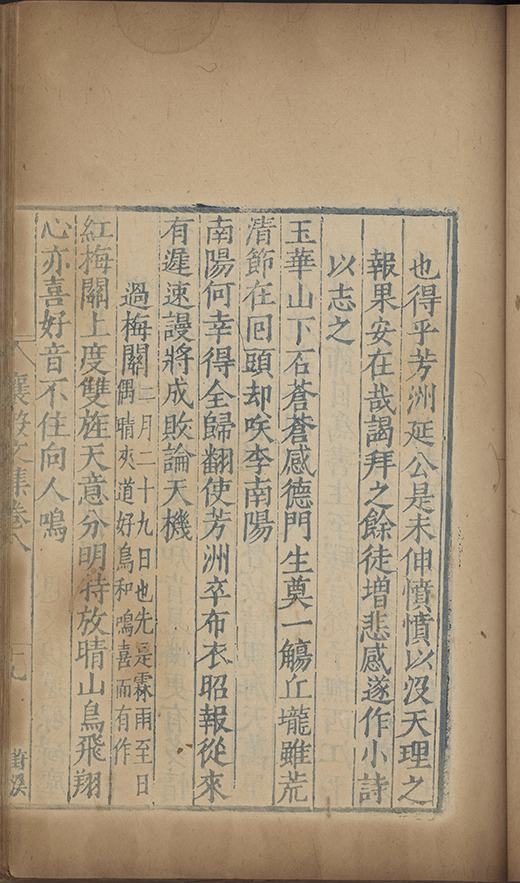 也得乎芳洲延公是未伸憤憤以沒天理之
報果安在哉謁拜之餘徒增悲感遂作小詩
以志之
玉華山下石蒼蒼感德門生奠一觴丘壠雖荒
清節在囘頭却唉李南陽
南陽何幸得全歸翻使芳洲卒布衣昭報從來
有遲速謾將成敗論天機
過梅關二月二十九日也先是霖雨至日
偶晴夾道好鳥和鳴喜而有作
紅梅關上度雙旌天意分明特放晴山鳥飛翔
心亦喜好音不住向人鳴
襄毅文集卷八